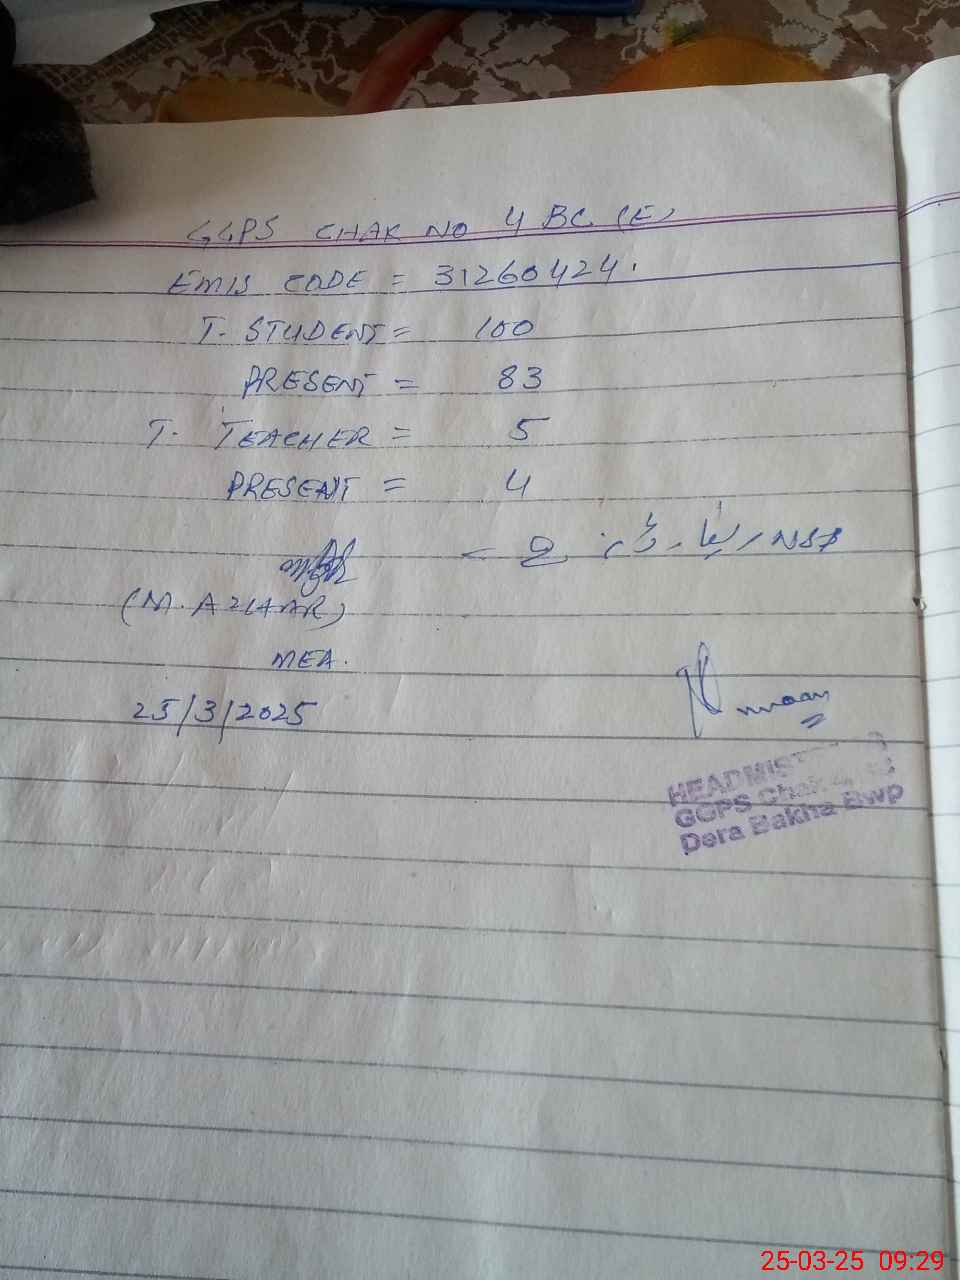 GGPS CHAK NO 4 BC (E)
EMIS CODE = 31260424.
T. STUDENT = 100
PRESENT = 83
T. TEACHER = 5
PRESENT = 4
NSB
(M. AZHAR)
MEA.
25/3/2025
HEADMIS
GGPS Chak
Dera Bakha Bwp
25-03-25 09:29